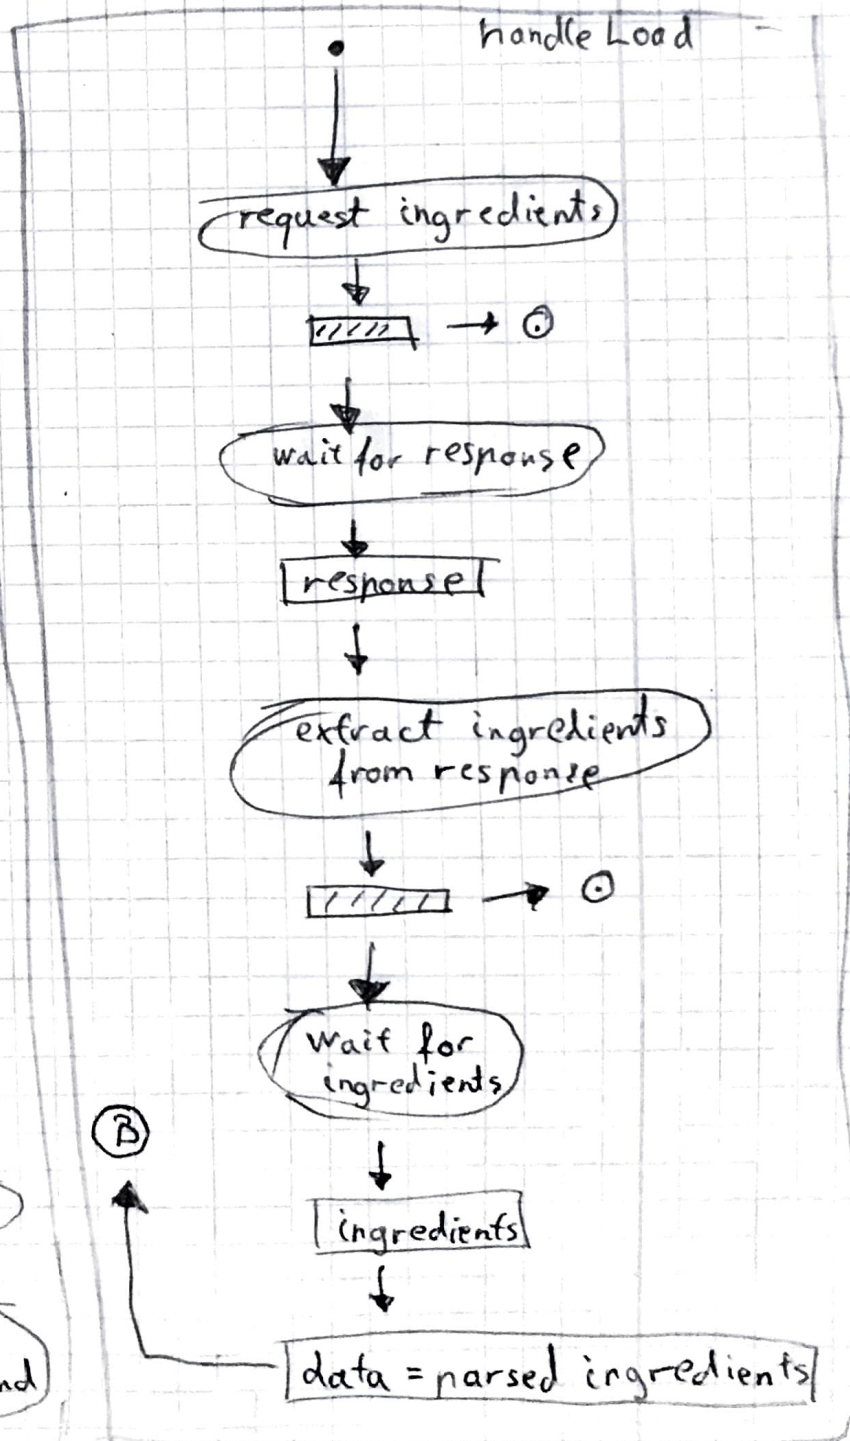 handle Load
request ingredients
wait for response
response
extract ingredients
from response
wait for
ingredients
B
ingredients
data = parsed ingredients
nd